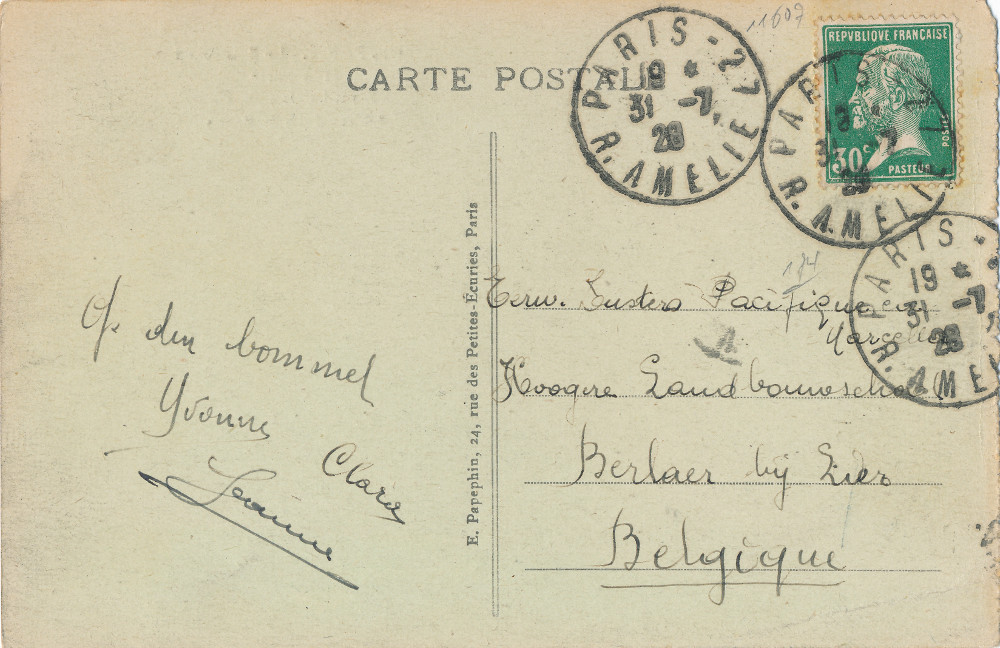 11607
CARTE POSTALE
REPVBLIQUE FRANÇAISE
POSTES
30c
PASTEUR
PARIS - 27
19 *
31 -7
28
R. AMELIE
PARIS
19
31 -7
28
R. AMELIE
PARIS -
19 *
31 -7
28
R. AMELIE
E. Papephin, 24, rue des Petites-Écuries, Paris
Op den bommel
Yvonne
Clara
Jeanne
174
Eerw. Zusters Pacifique en
Marcelia
Hoogere Landbouwschool
Berlaer bij Lier
Belgique